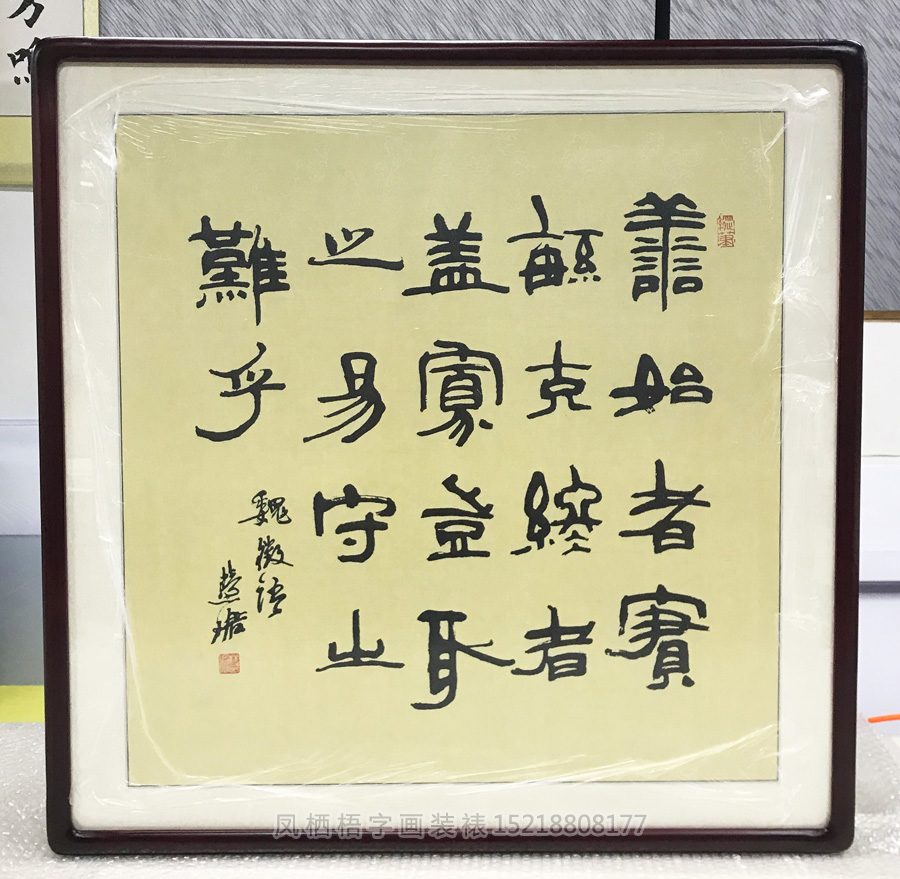 善始者實
繁克終者
盖寡豈取
之易守之
難乎
魏徵語
凤栖梧字画装裱15218808177